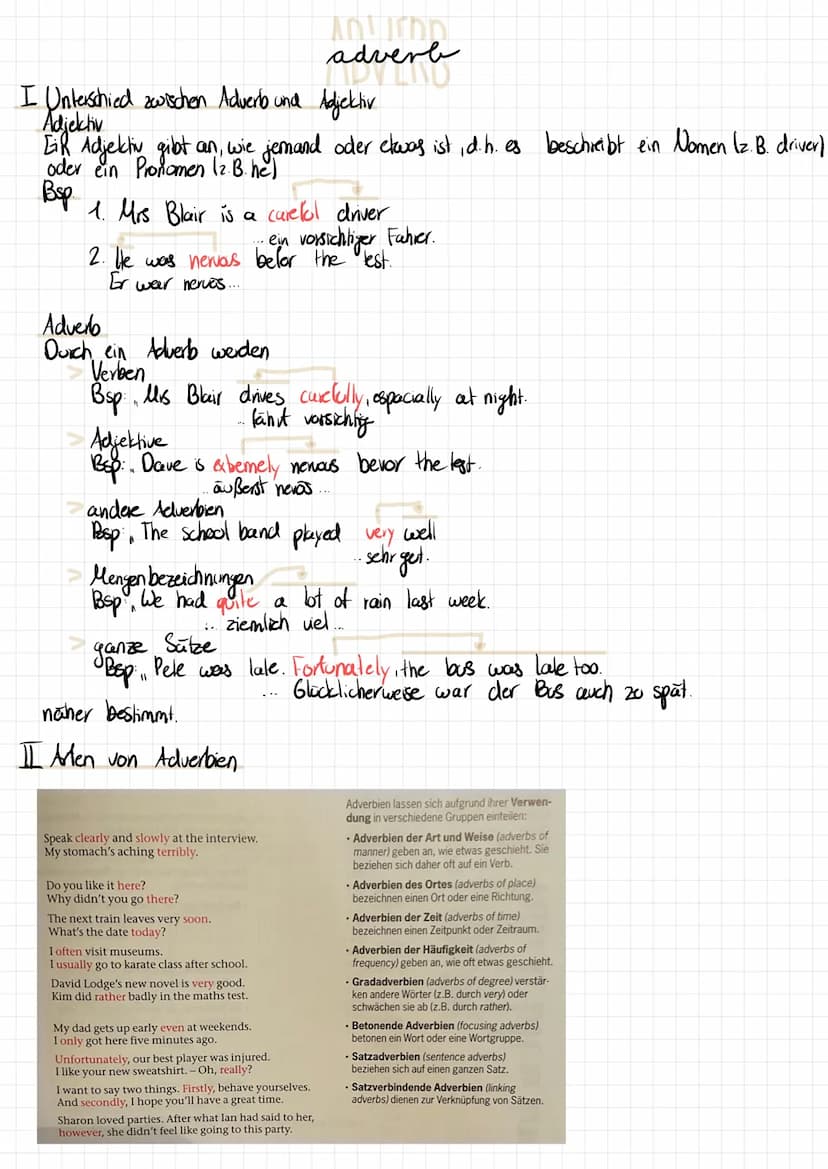 ADVERB
adverb
I Unterschied zwischen Adverb und Adjektiv
Adjektiv
Ein Adjektiv gibt an, wie jemand oder etwas ist, d.h. es beschreibt ein Nomen (z.B. driver)
oder ein Pronomen (z.B. he)
Bsp.
1. Mrs Blair is a careful driver
... ein vorsichtiger Fahrer.
2. He was nervas befor the test.
Er war nervös...
Adverb
Durch ein Adverb werden
> Verben
Bsp.: Mrs Blair drives carefully, espacially at night.
.. fährt vorsichtig
> Adjektive
Bsp.: Dave is extremely nervous bevor the test.
... äußerst nevös ...
> andere Adverbien
Bsp.: The school band played very well
... sehr gut.
> Mengenbezeichnungen
Bsp.: We had quite a lot of rain last week.
... ziemlich viel ...
> ganze Sätze
Bsp.: Pete was late. Fortunately, the bus was late too.
... Glücklicherweise war der Bus auch zu spät.
näher bestimmt.
II Arten von Adverbien
Adverbien lassen sich aufgrund ihrer Verwen-
dung in verschiedene Gruppen einteilen:
Speak clearly and slowly at the interview.
My stomach's aching terribly.
• Adverbien der Art und Weise (adverbs of
manner) geben an, wie etwas geschieht. Sie
beziehen sich daher oft auf ein Verb.
Do you like it here?
Why didn't you go there?
• Adverbien des Ortes (adverbs of place)
bezeichnen einen Ort oder eine Richtung.
The next train leaves very soon.
What's the date today?
• Adverbien der Zeit (adverbs of time)
bezeichnen einen Zeitpunkt oder Zeitraum.
I often visit museums.
I usually go to karate class after school.
• Adverbien der Häufigkeit (adverbs of
frequency) geben an, wie oft etwas geschieht.
David Lodge's new novel is very good.
Kim did rather badly in the maths test.
• Gradadverbien (adverbs of degree) verstär-
ken andere Wörter (z.B. durch very) oder
schwächen sie ab (z.B. durch rather).
My dad gets up early even at weekends.
I only got here five minutes ago.
• Betonende Adverbien (focusing adverbs)
betonen ein Wort oder eine Wortgruppe.
Unfortunately, our best player was injured.
I like your new sweatshirt. – Oh, really?
• Satzadverbien (sentence adverbs)
beziehen sich auf einen ganzen Satz.
I want to say two things. Firstly, behave yourselves.
And secondly, I hope you'll have a great time.
• Satzverbindende Adverbien (linking
adverbs) dienen zur Verknüpfung von Sätzen.
Sharon loved parties. After what Ian had said to her,
however, she didn't feel like going to this party.